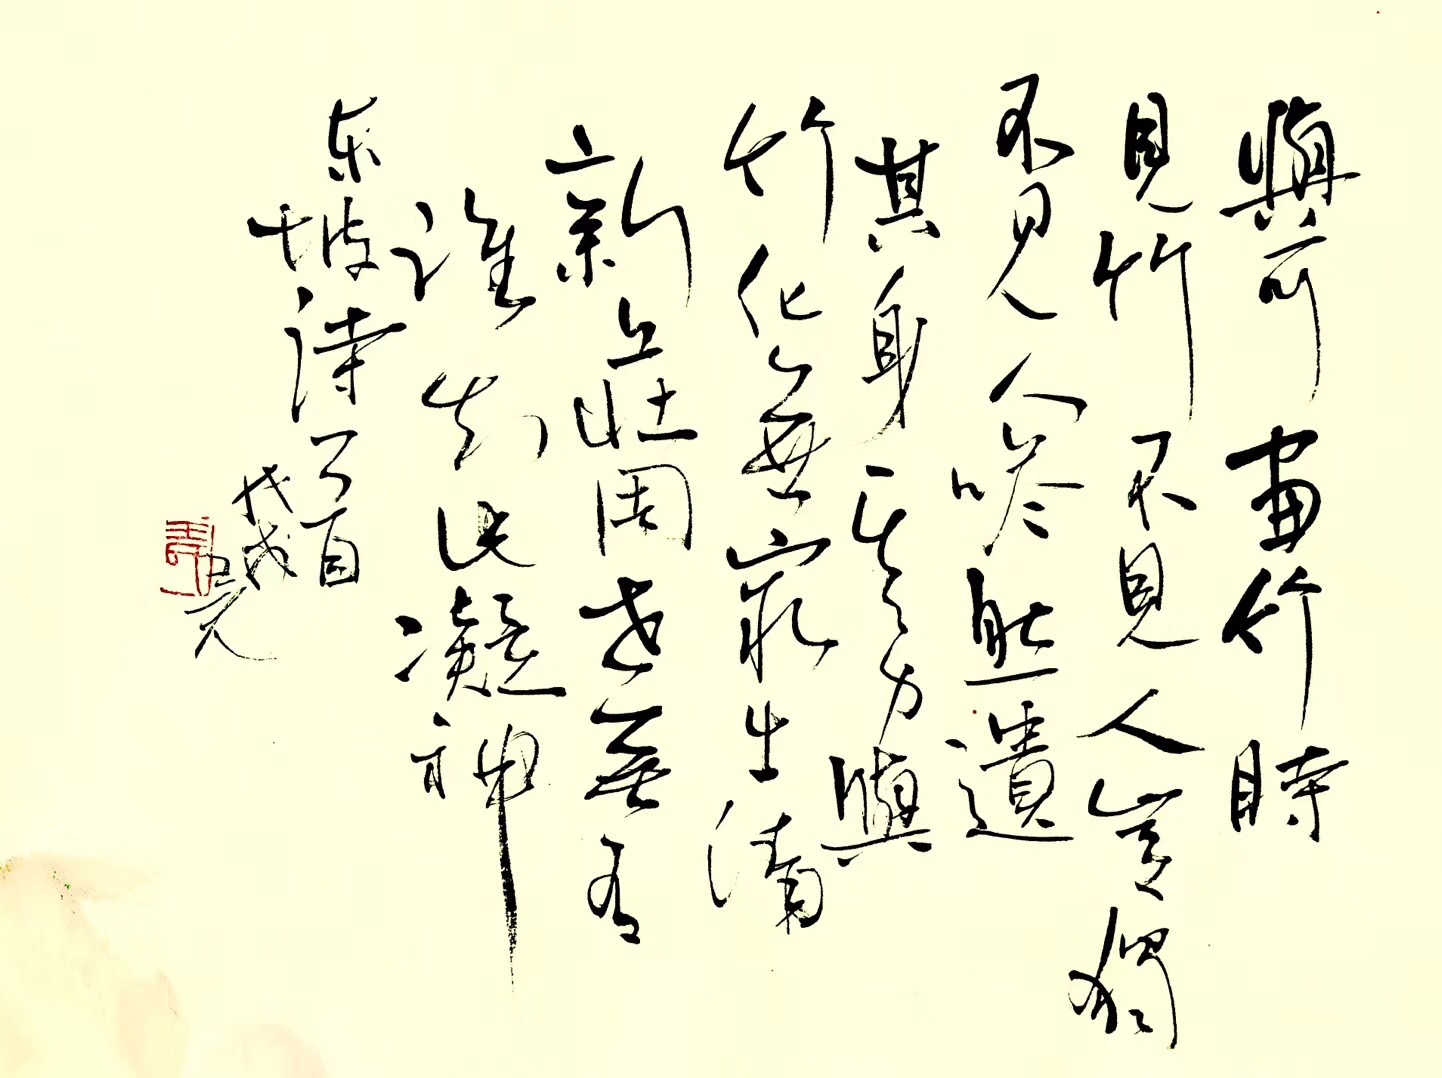 與可畫竹時
見竹不見人豈獨
不見人嗒然遺
其身其身與
竹化無窮出清
新莊周世無有
誰知此凝神
東坡詩一首
戊戌